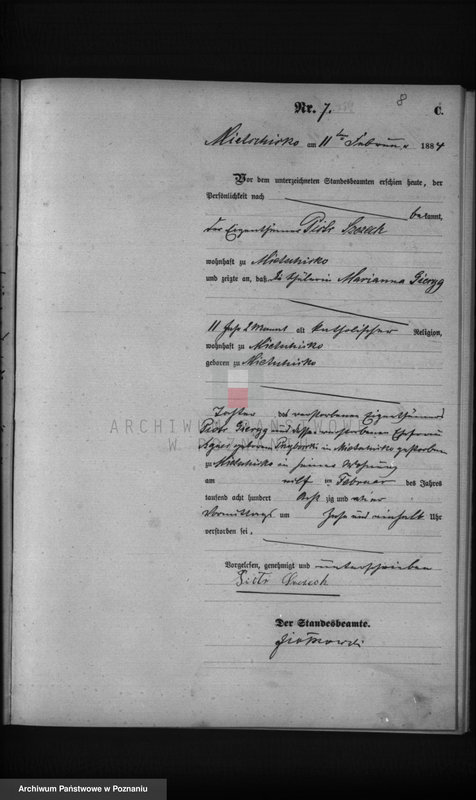 8
Nr. 7.
C.
Mietschisko am 11ten Februar 1884
Vor dem unterzeichneten Standesbeamten erschien heute, der
Persönlichkeit nach
bekannt,
der Eigenthümer Piotr Szesech
wohnhaft zu Mietschisko
und zeigte an, daß die Schülerin Marianna Gieryg
11 Jahr 2 Monat alt katholischer Religion,
wohnhaft zu Mietschisko
geboren zu Mietschisko
Tochter des verstorbenen Eigenthümers
Piotr Gieryg und dessen verstorbenen Ehefrau
geborenen in Mietschisko gestorben
ARCHIWUM PAŃSTWOWE
W POZNANIU
zu Mietschisko in seiner Wohnung
am elf ten Februar des Jahres
tausend acht hundert acht zig und vier
Vormittags um Uhr
verstorben sei.
Vorgelesen, genehmigt und unterschrieben
Piotr
Der Standesbeamte.
Archiwum Państwowe w Poznaniu